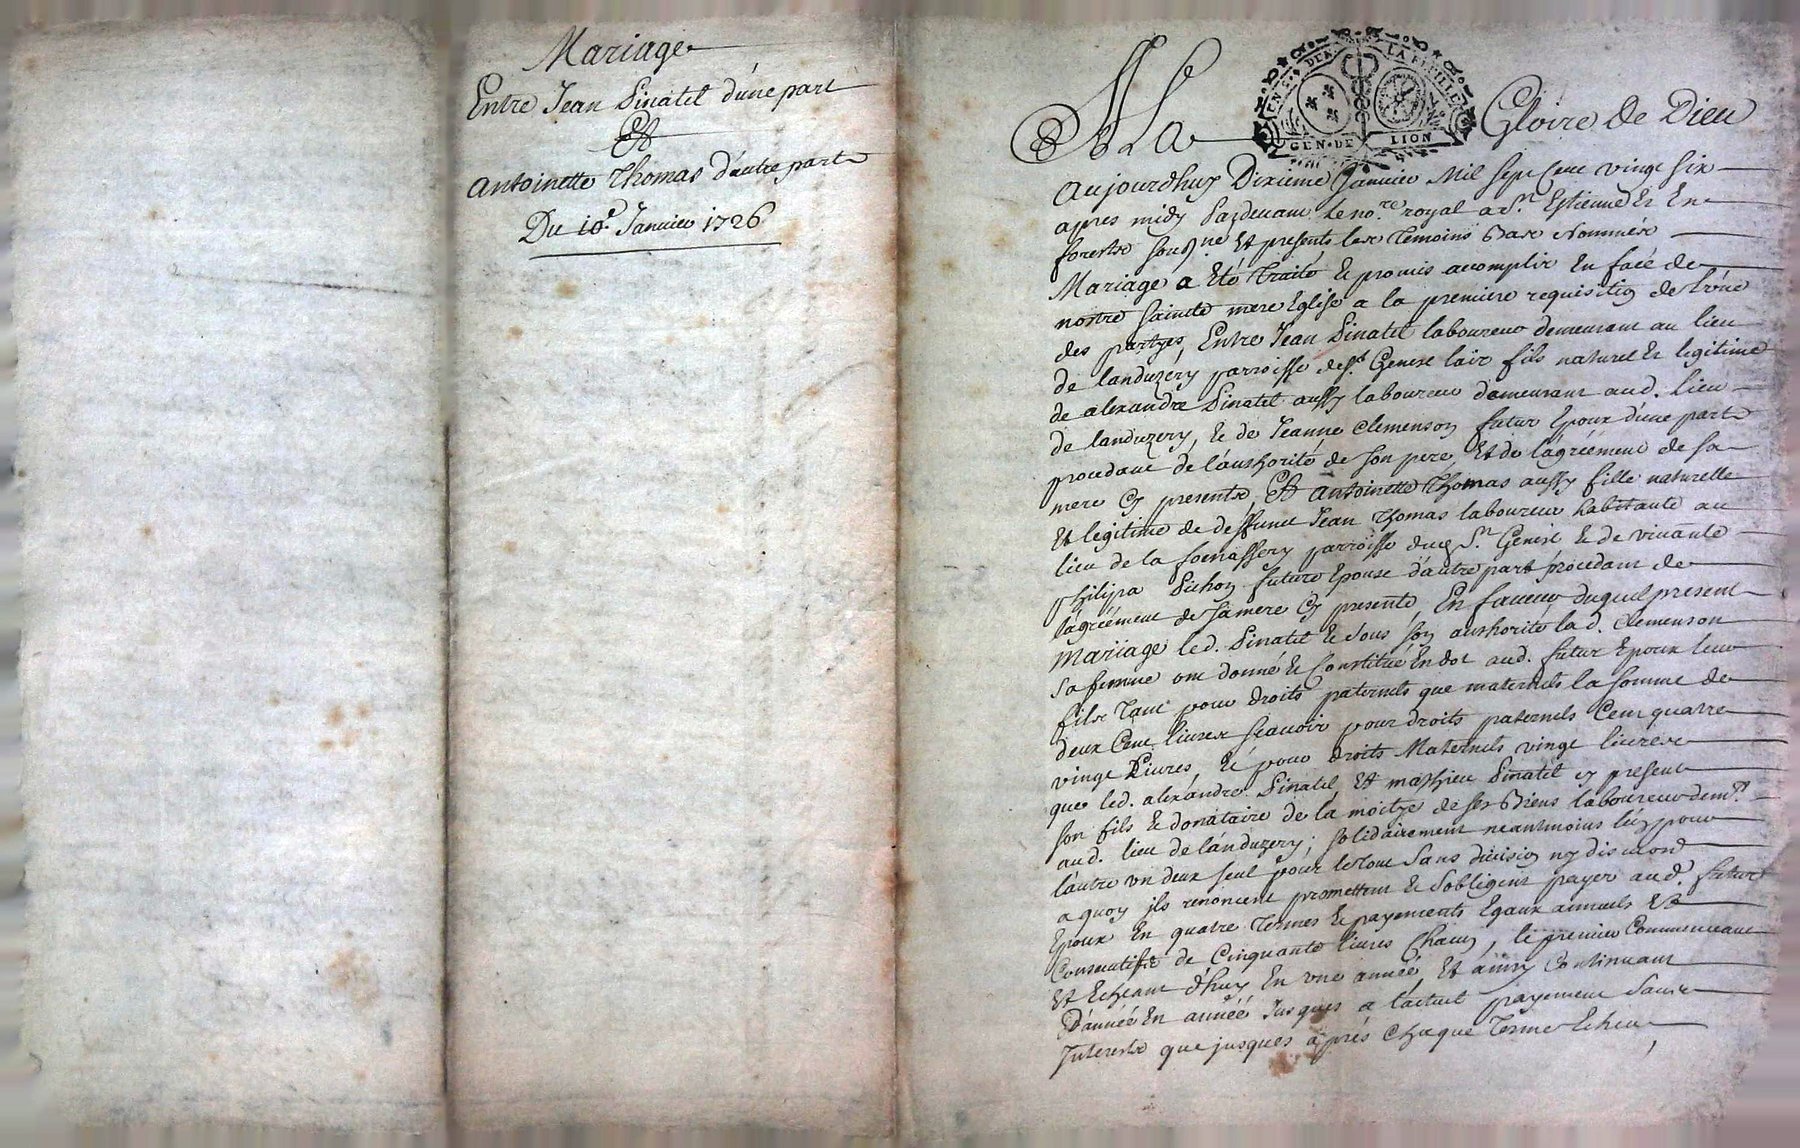 Mariage
Entre Jean Pinatel d'une part
Et
Antoinette Thomas d'autre part
Du 10e Janvier 1726
GEN. DE LION
A La Gloire de Dieu
Aujourdhuy Dixieme Janvier Mil Sept Cent vingt Six
apres midy Pardevant le no.re royal a St. Estienne En
forests sousg.né Et presents les Temoins Bas Nommés
Mariage a Eté Traité & promis accomplir En face de
nostre Sainte mere Eglise a la premiere requisition de L'une
des partyes, Entre Jean Pinatel laboureur demeurant au lieu
de landuzery parroisse de St. Genest lair fils naturel Et legitime
de alexandre Pinatel aussy laboureur demeurant aud. lieu
de landuzery, & de Jeanne Clemenson futur Epoux d'une part
procedant de l'authorité de son pere Et de l'agréement de sa
mere Cy presents, Et Antoinette Thomas aussy fille naturelle
Et legitime de deffunt Jean Thomas laboureur habitante au
lieu de la parroisse dud. St. Genest & de vivante
Philipa Pichon future Epouse d'autre part procedant de
l'agréement de sa mere Cy presente, En faveur duquel present
Mariage led. Pinatel & Sous son authorité lad. Clemenson
Sa femme ont donné & Constitué En dot aud. futur Epoux leur
fils Tant pour droits paternels que maternels la somme de
deux Cent livres scavoir pour droits paternels Cent quatre
vingt Livres & pour droits Maternels vingt livres
que led. alexandre Pinatel, Et mathieu Pinatel cy present
son fils & donataire de la moitye de ses Biens laboureur dem.t
aud. lieu de landuzery, solidairement neantmoins lun pour
lautre un deux seul pour le tout Sans division ny discution
a quoy ils renoncent promettent & S'obligent payer aud. futur
Epoux En quatre Termes & payements Egaux annuels Et
Consecutifs de Cinquante livres Chacun, le premier Commenceant
Et Echeant d'huy En une année, Et ainsy Continuant
D'année En année Jusques a l'actuel payement Sans
Interests que jusques après Chaque Terme Echeu